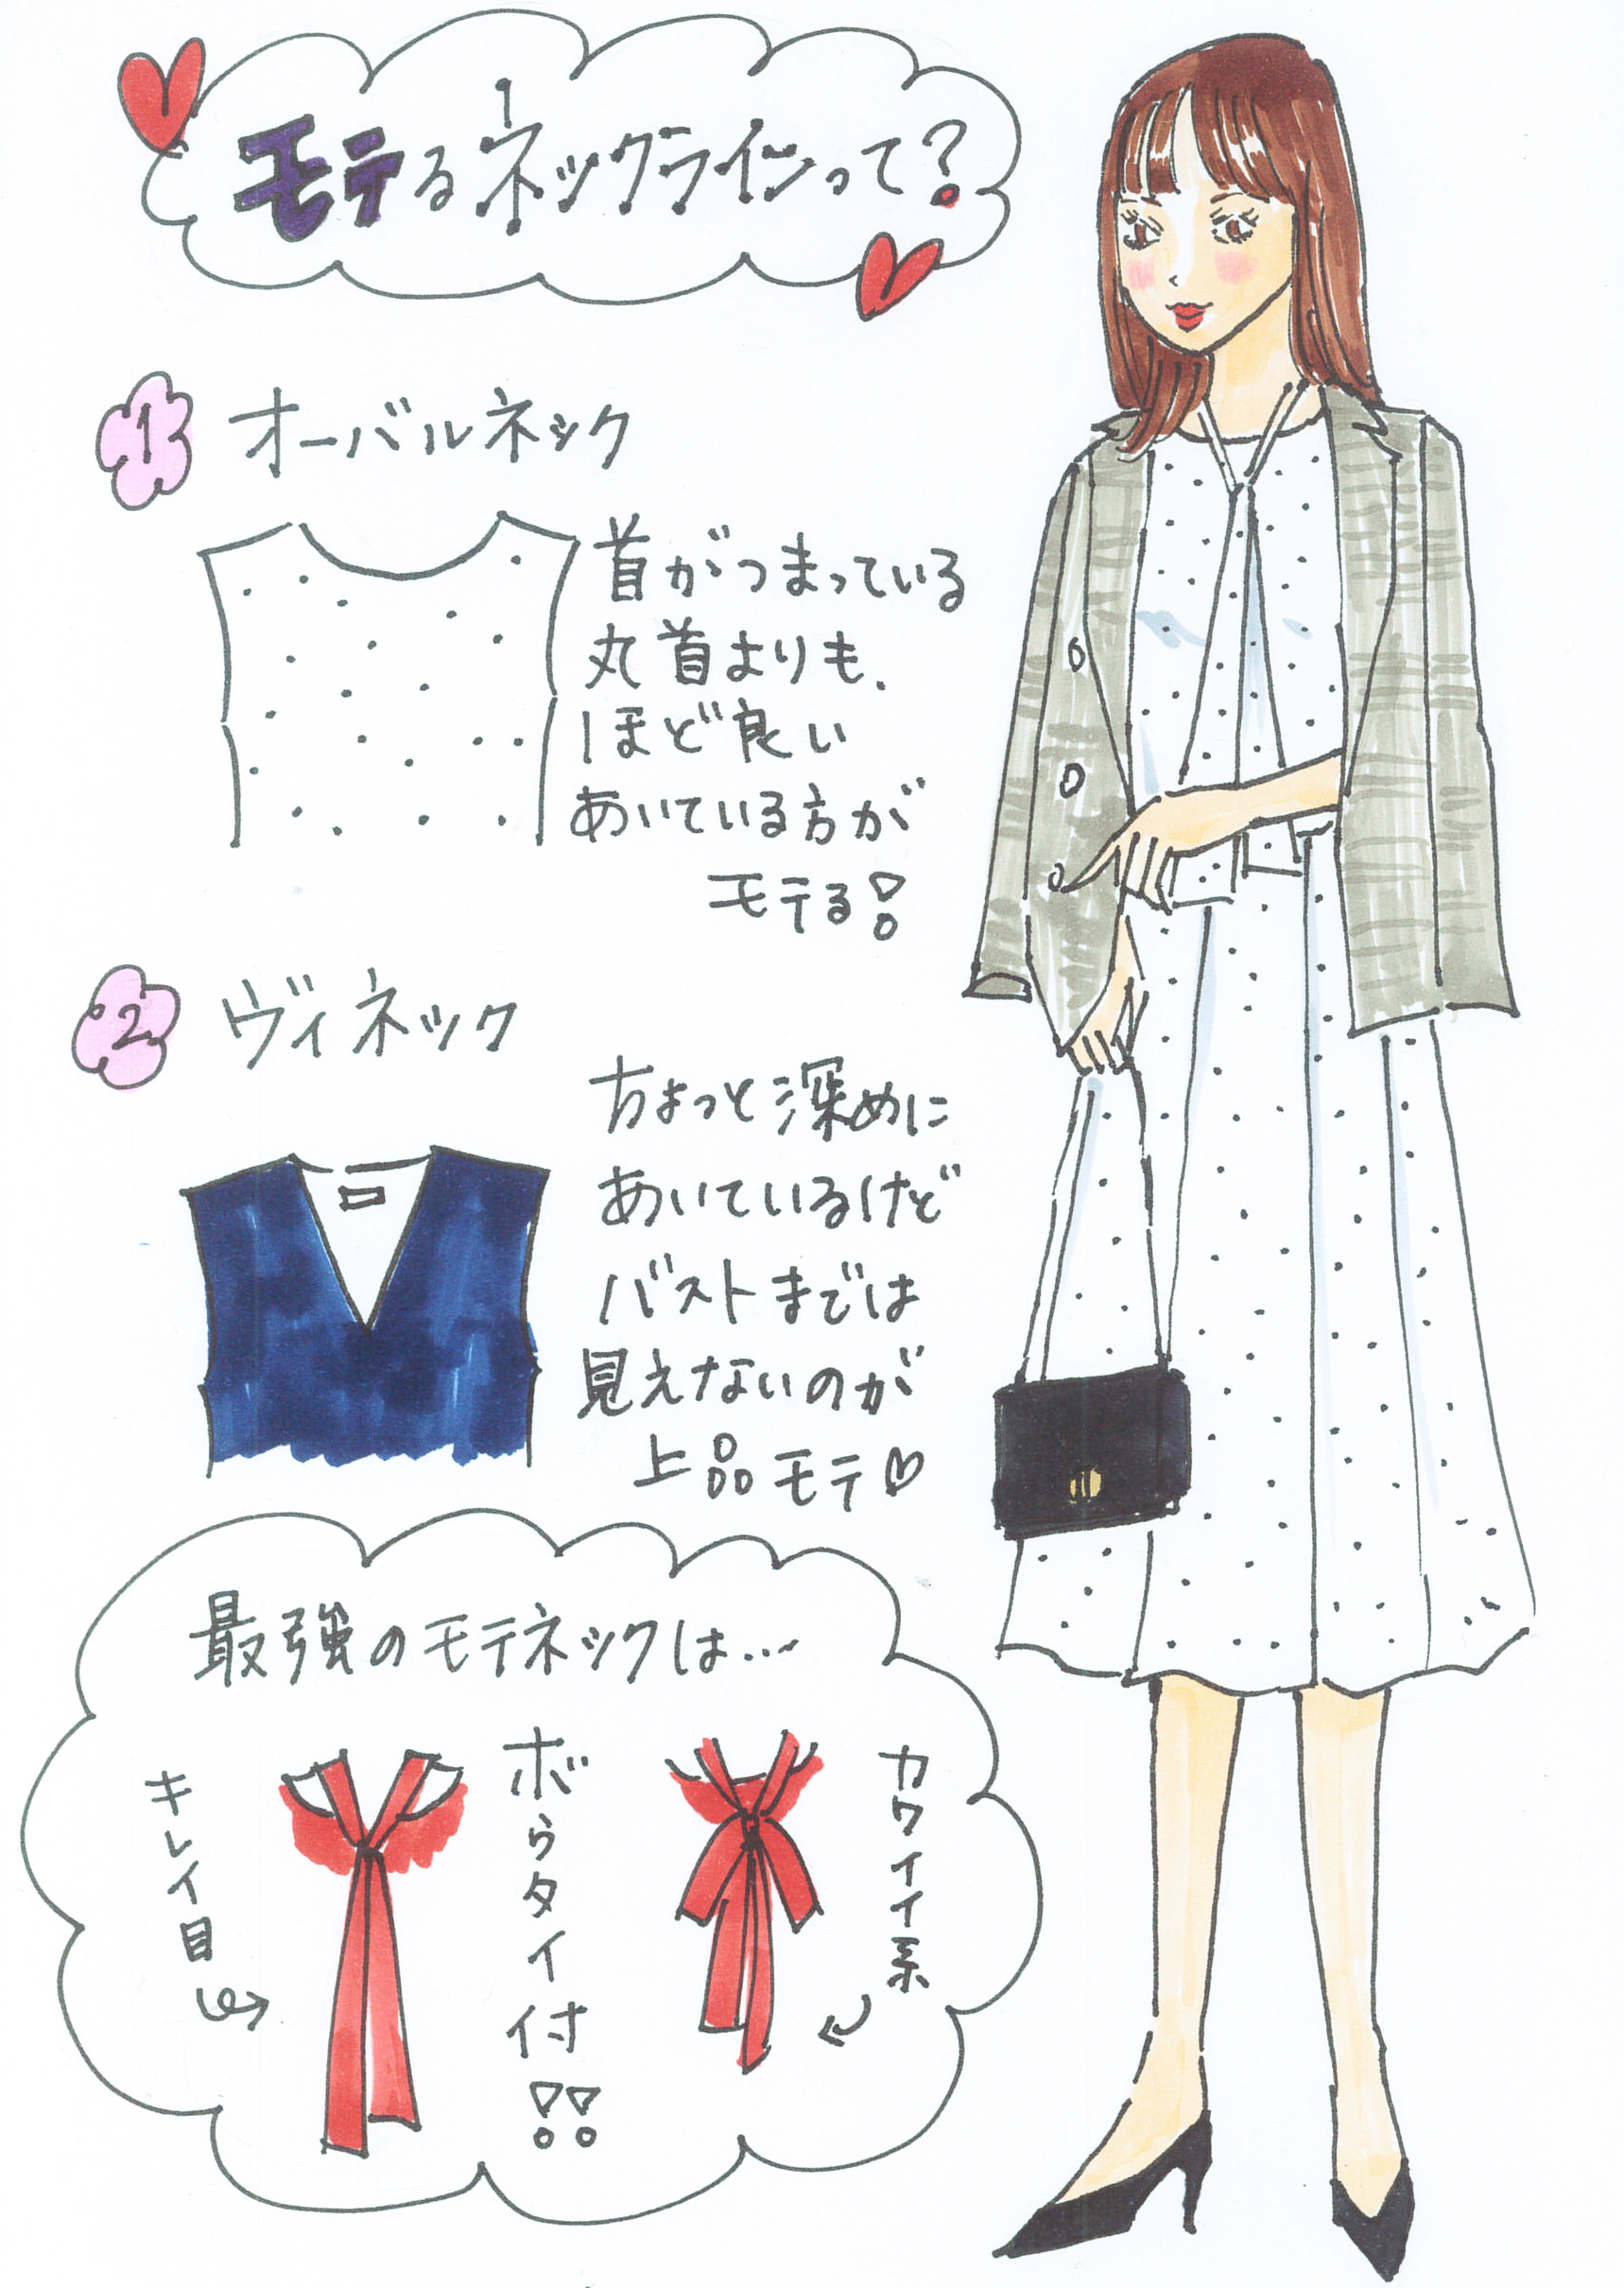 モテるネックラインって?
1 オーバルネック
首がつまっている
丸首よりも、
ほど良い
あいている方が
モテる!
2 ヴィネック
ちょっと深めに
あいているけど
バストまでは
見えないのが
上品モテ♡
最強のモテネックは...
キレイ目
ボウタイ付!!
カワイイ系